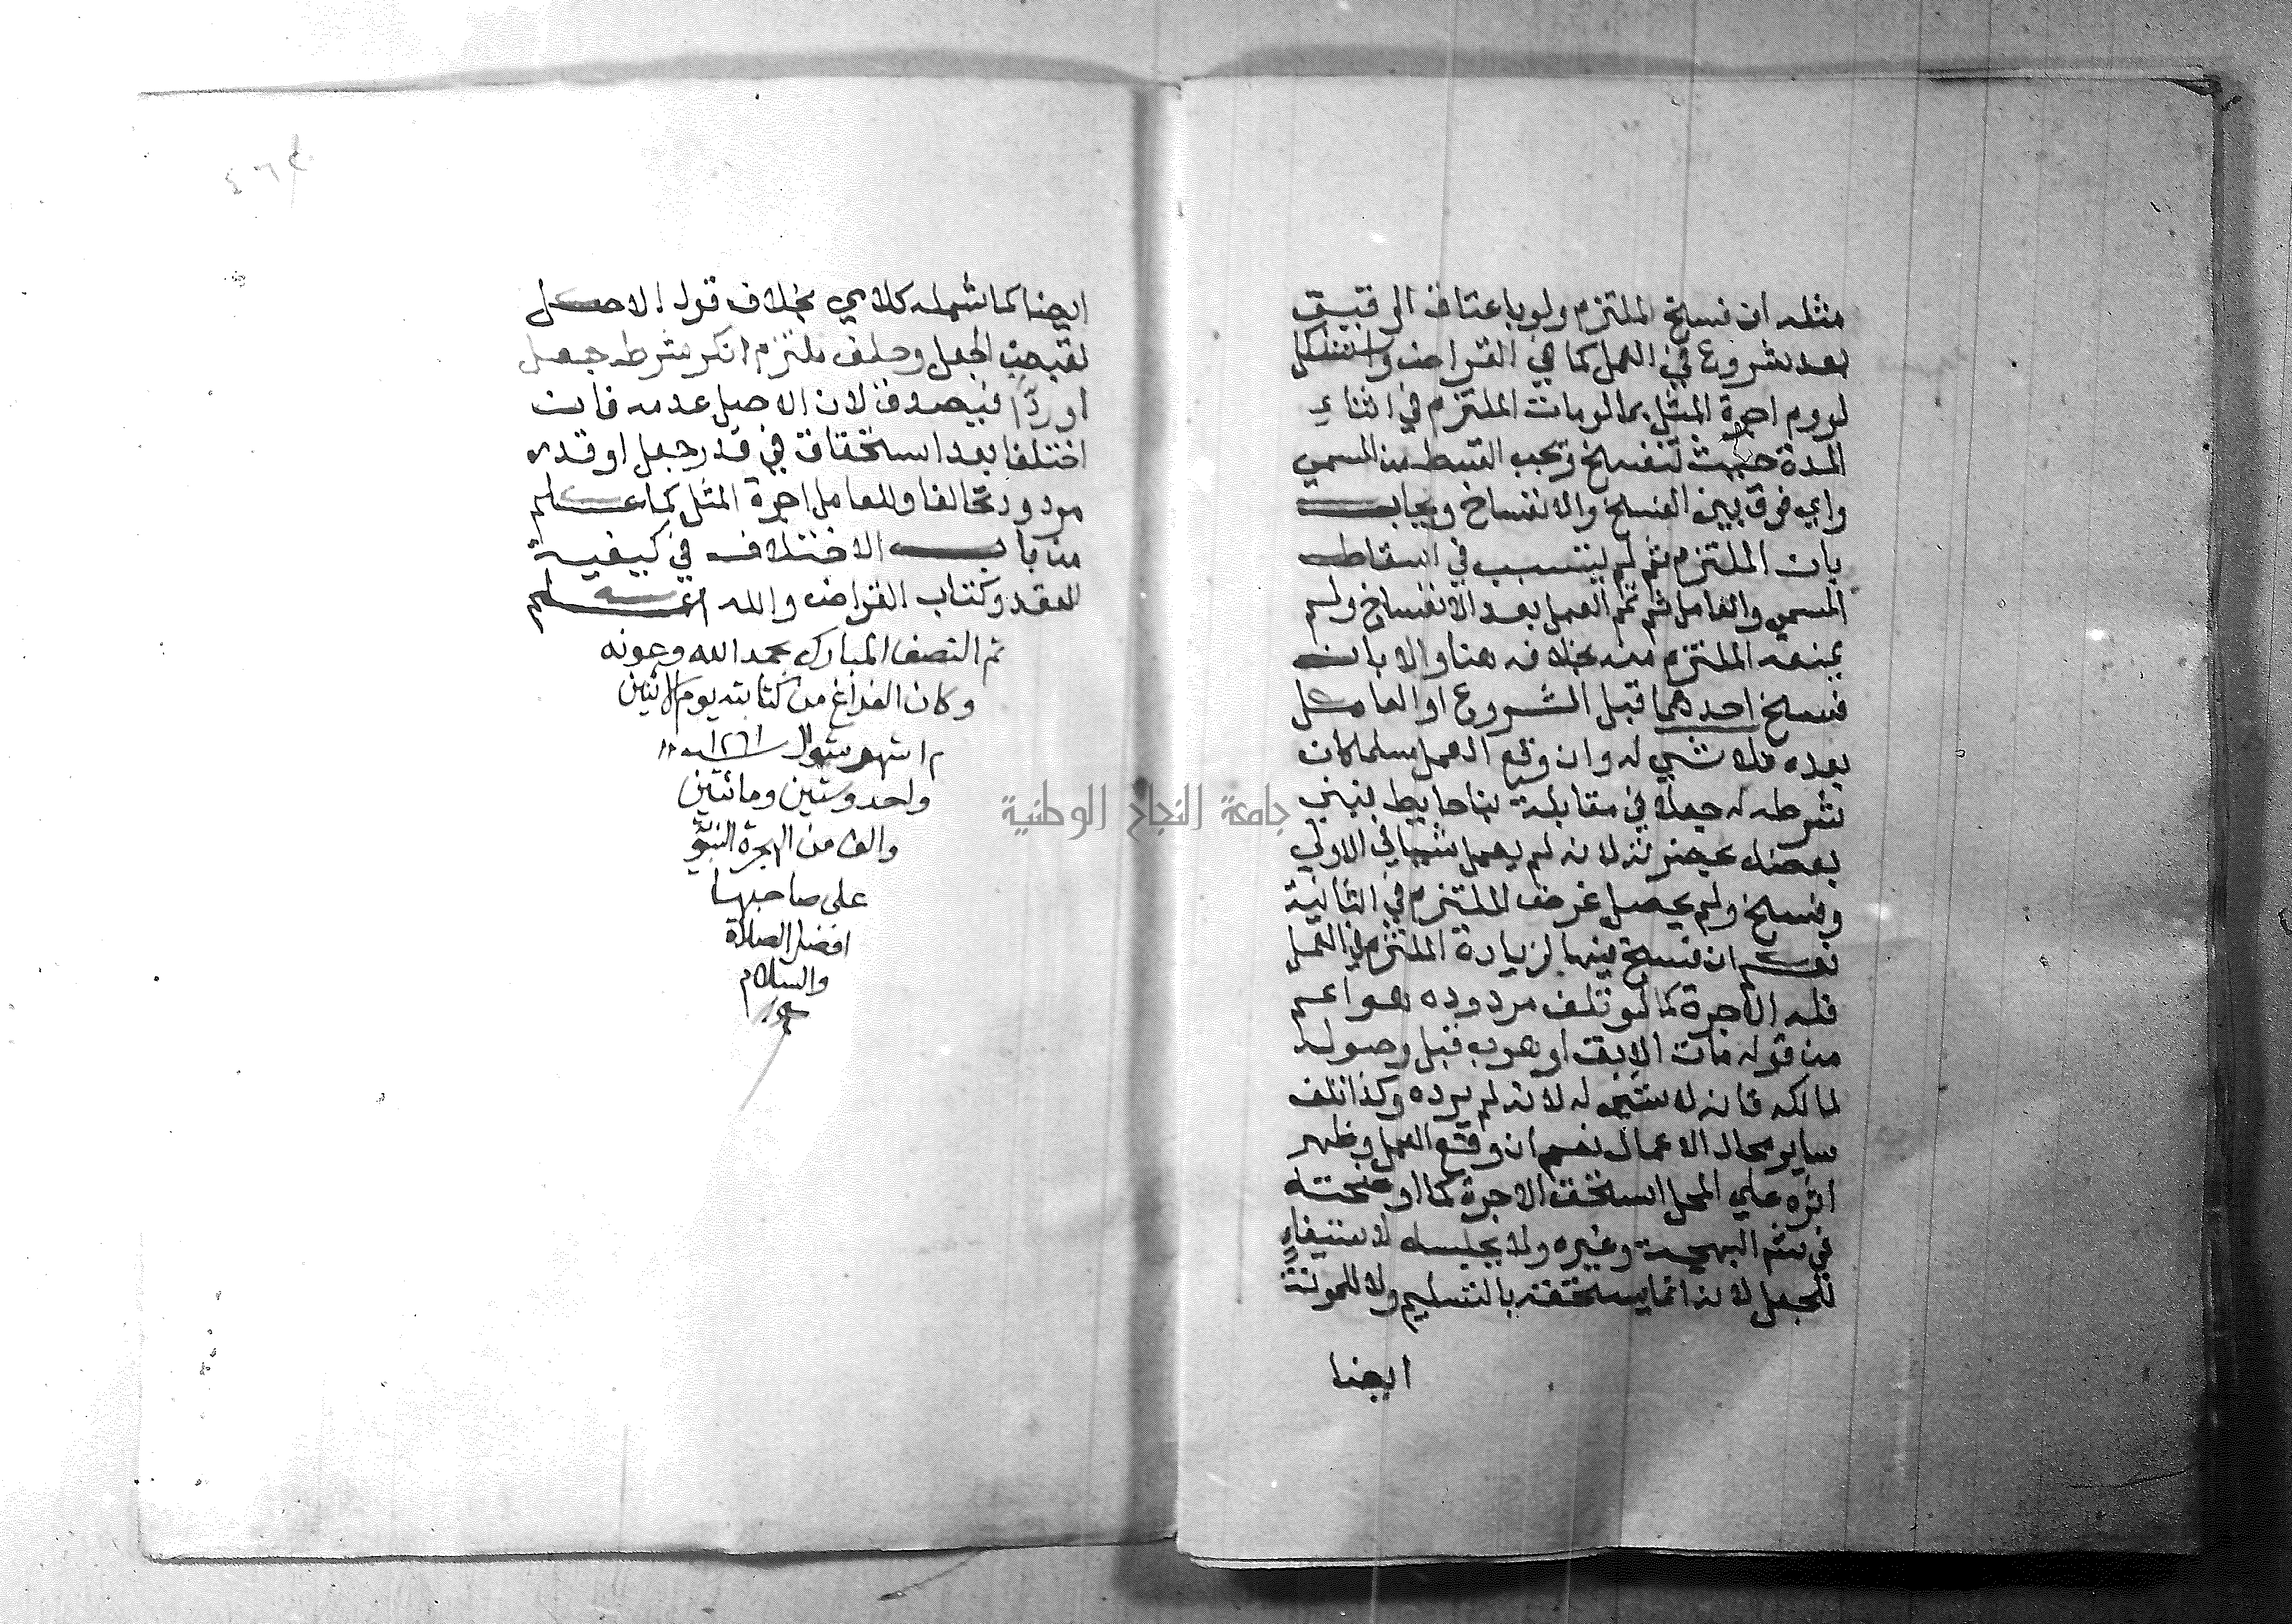 مثله ان فسخ الملتزم ولو باعتاق الرقيق
بعد شروع في العمل كما في القراض واستشكل
لزوم اجرة المثل بما لو مات الملتزم في اثناء
المدة حيث تنفسخ ويجب القسط من المسمى
واي فرق بين الفسخ والانفساخ ويجاب
بان الملتزم ثم لم يتسبب في اسقاط
المسمى والعامل ثم تمم العمل بعد الانفساخ ولم
يمنعه الملتزم منه بخلافه هنا والا بان
فسخ احدهما قبل الشروع او العامل
بعده فلا شي له وان وقع العمل مسلما كان
شرط له جعلا في مقابلة بنا حايط فبنى
بعضه بحضرته لانه لم يعمل شيا في الاولى
وفسخ ولم يحصل غرض الملتزم في الثانية
نعم ان فسخ فيها لزيادة الملتزم في العمل
فله الاجرة كما لو تلف مردوده هو اعم
من قوله مات الابق او هرب قبل وصوله
لمالكه فانه لا شي له لانه لم يرده وكذا تلف
ساير محال الاعمال نعم ان وقع العمل وظهر
اثره على المحل استحق الاجرة كما اوضحته
في شرح البهجة وغيره ولا يحبسه لاستيفاء
للجعل لانه انما يستحقه بالتسليم ولا للمونة
ايضا
ايضا كما شمله كلامي بخلاف قول الاصل
لقبض الجعل وحلف ملتزم انكر شرط جعل
او ردّا فيصدق لان الاصل عدمه فان
اختلفا بعد استحقاق في قدر جعل او قدر
مردود تحالفا وللعامل اجرة المثل كما علم
من باب الاختلاف في كيفية
العقد وكتاب القراض والله اعلم
تم النصف المبارك بحمد الله وعونه
وكان الفراغ من كتابته يوم الاثنين
شهر شوال ١٢٦١ سنة
واحد وستين ومائتين
والف من الهجرة النبوية
على صاحبها
افضل الصلاة
والسلام
جامعة النجاح الوطنية